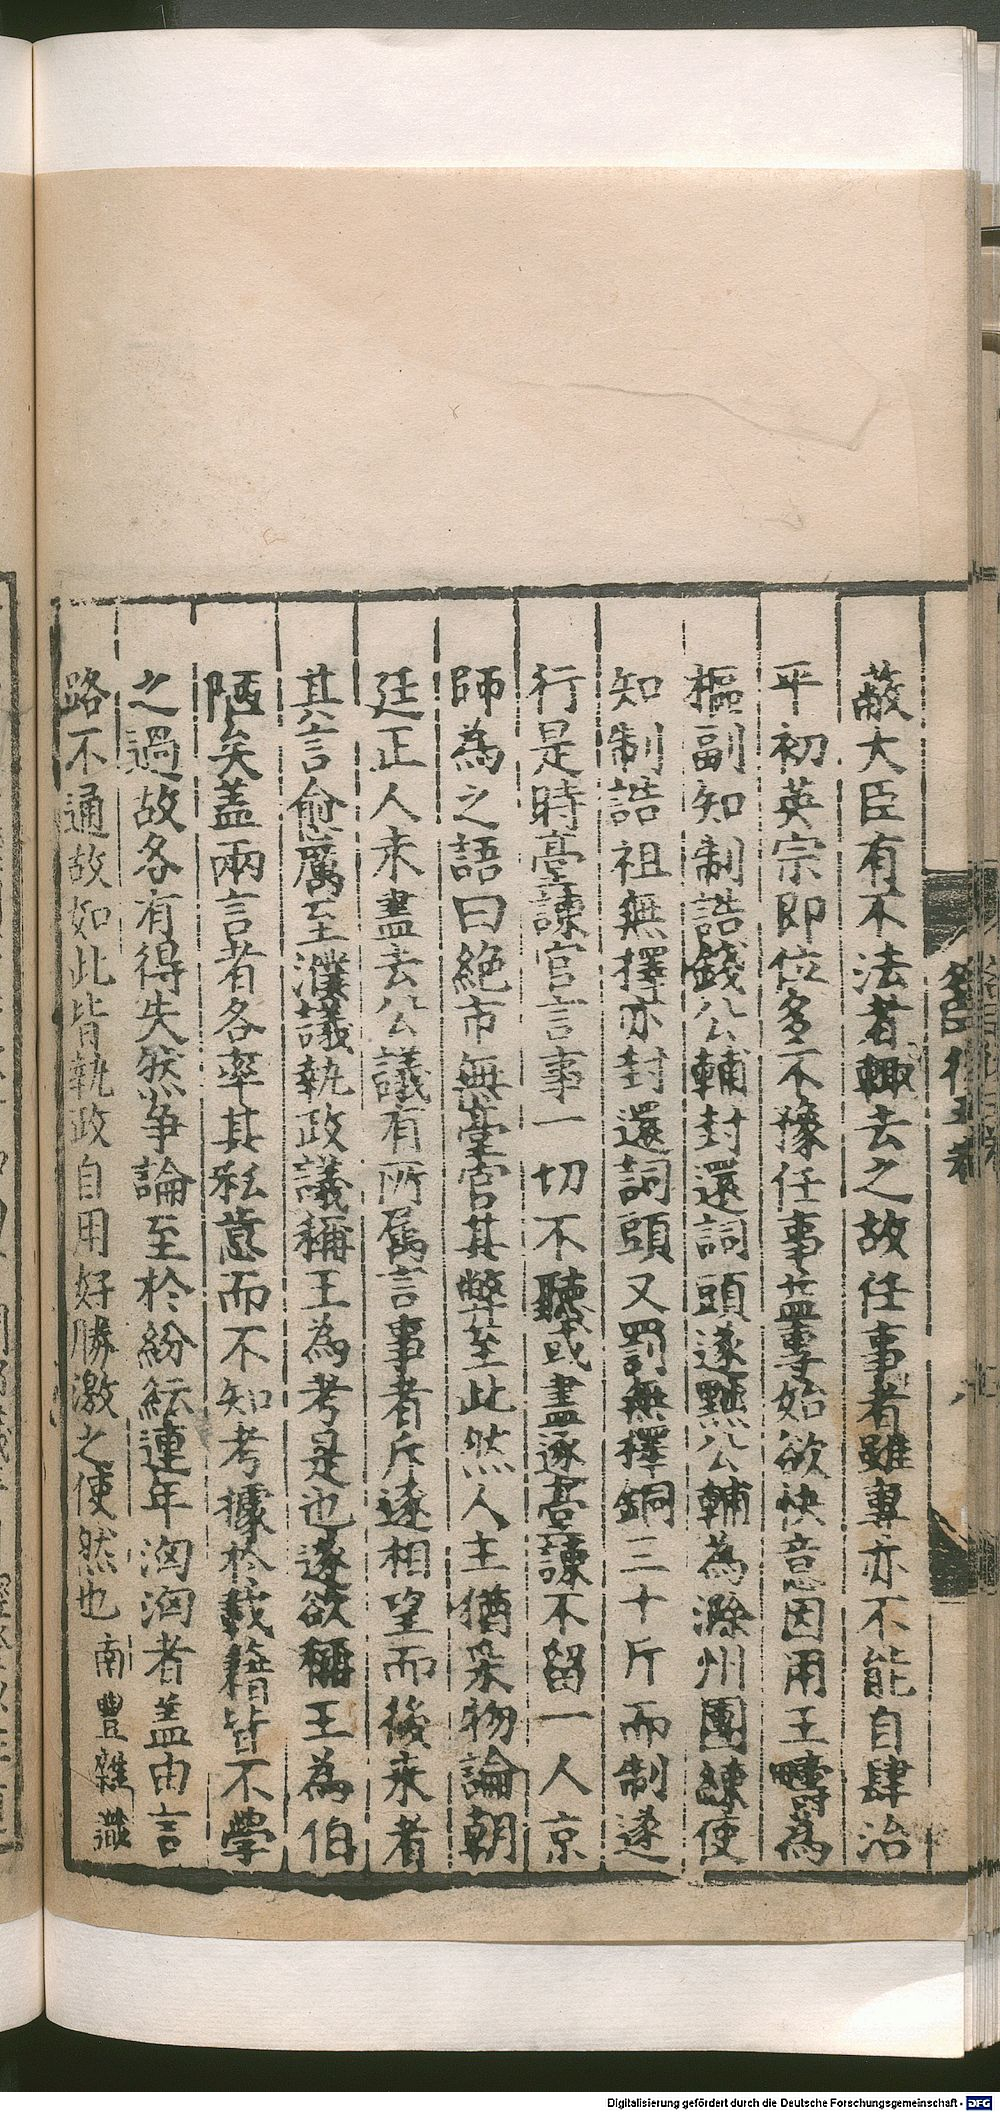 蔽大臣有不法者輙去之故任事者雖專亦不能自肆治
平初英宗即位多不豫任事益專始欲快意因用王疇為
樞副知制誥錢公輔封還詞頭遂黜公輔為滁州團練使
知制誥祖無擇亦封還詞頭又罰無擇銅三十斤而制遂
行是時臺諫官言事一切不聽或盡逐臺諫不留一人京
師為之語曰絕市無臺官其弊至此然人主猶采物論朝
廷正人未盡去公議有所属言事者斥逐相望而後来者
其言愈厲至濮議執政議稱王為考是也遂欲稱王為伯
陋矣盖兩言者各率其私意而不知考據於載籍皆不學
之過故各有得失然争論至於紛紜連年洶洶者盖由言
路不通故如此皆執政自用好勝激之使然也 南豐雜識
Digitalisierung gefördert durch die Deutsche Forschungsgemeinschaft - DFG